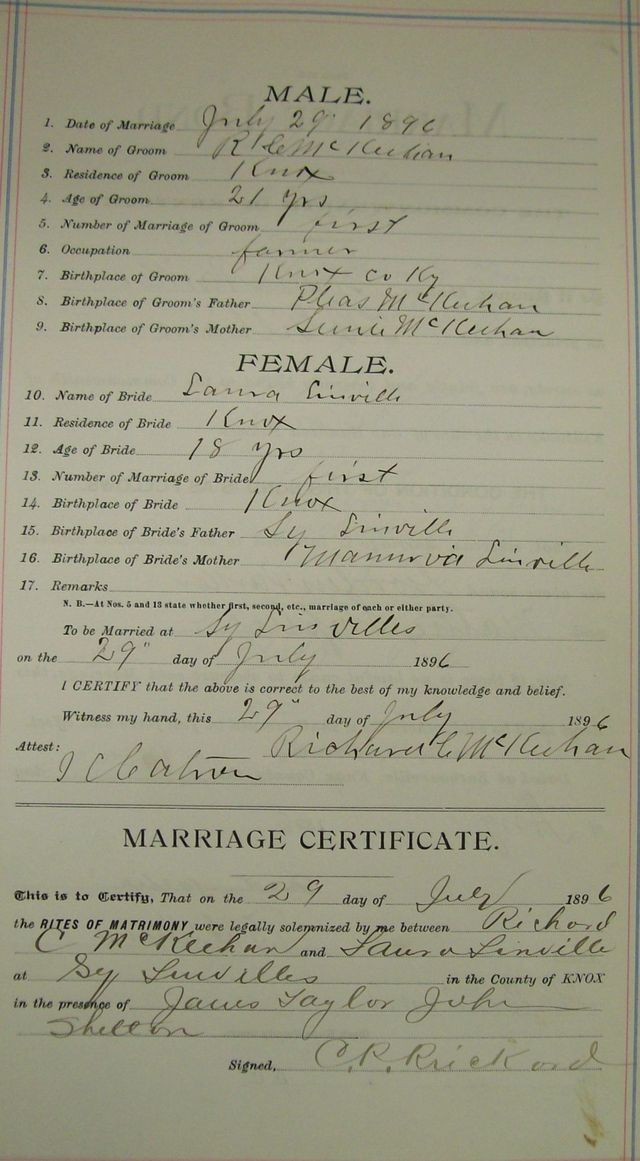 MALE.
1. Date of Marriage July 29" 1896
2. Name of Groom R C McKeehan
3. Residence of Groom Knox
4. Age of Groom 21 yrs
5. Number of Marriage of Groom first
6. Occupation farmer
7. Birthplace of Groom Knox co Ky
8. Birthplace of Groom's Father Pleas McKeehan
9. Birthplace of Groom's Mother McKeehan
FEMALE.
10. Name of Bride Laura Linville
11. Residence of Bride Knox
12. Age of Bride 18 yrs
13. Number of Marriage of Bride first
14. Birthplace of Bride Knox
15. Birthplace of Bride's Father Sy Linville
16. Birthplace of Bride's Mother Linville
17. Remarks
N. B.—At Nos. 5 and 13 state whether first, second, etc., marriage of each or either party.
To be Married at Sy Linvilles
on the 29" day of July 1896
I CERTIFY that the above is correct to the best of my knowledge and belief.
Witness my hand, this 29" day of July 1896
Richard C McKeehan
Attest:
MARRIAGE CERTIFICATE.
This is to Certify, That on the 29 day of July 1896
the RITES OF MATRIMONY were legally solemnized by me between Richard
C McKeehan and Laura Linville
at Sy Linvilles in the County of KNOX
in the presence of James Taylor John
Shelton
Signed, C. R. Rickord